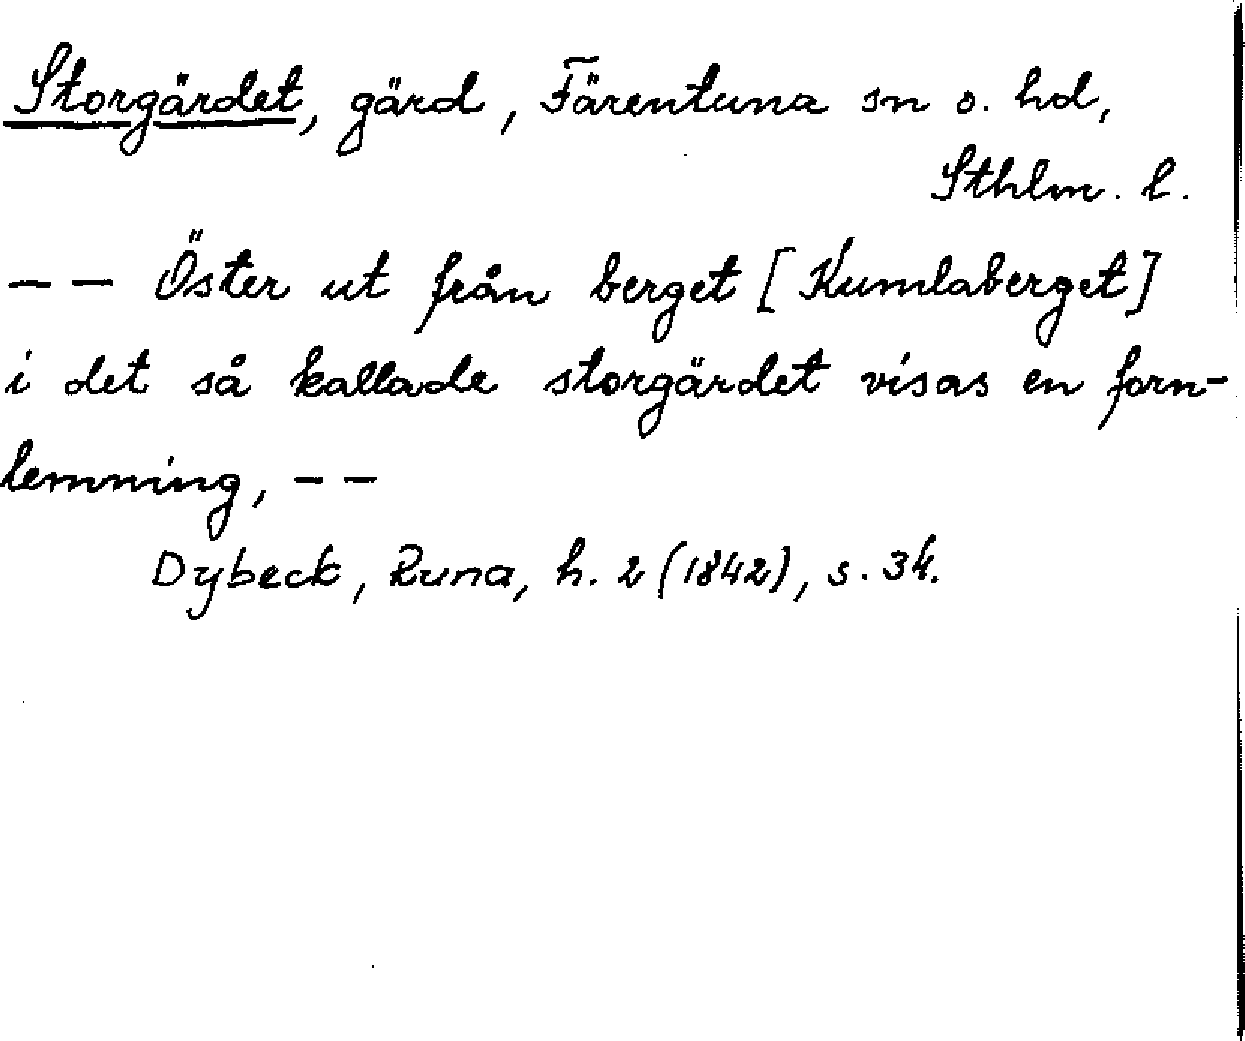 Storgärdet, gärd, Färentuna sn o. hd,
Sthlm. l.
-- Öster ut från berget [Kumlaberget]
i det så kallade storgärdet visas en forn-
lemning, --
Dybeck, Runa, h. 2 (1842), s. 34.